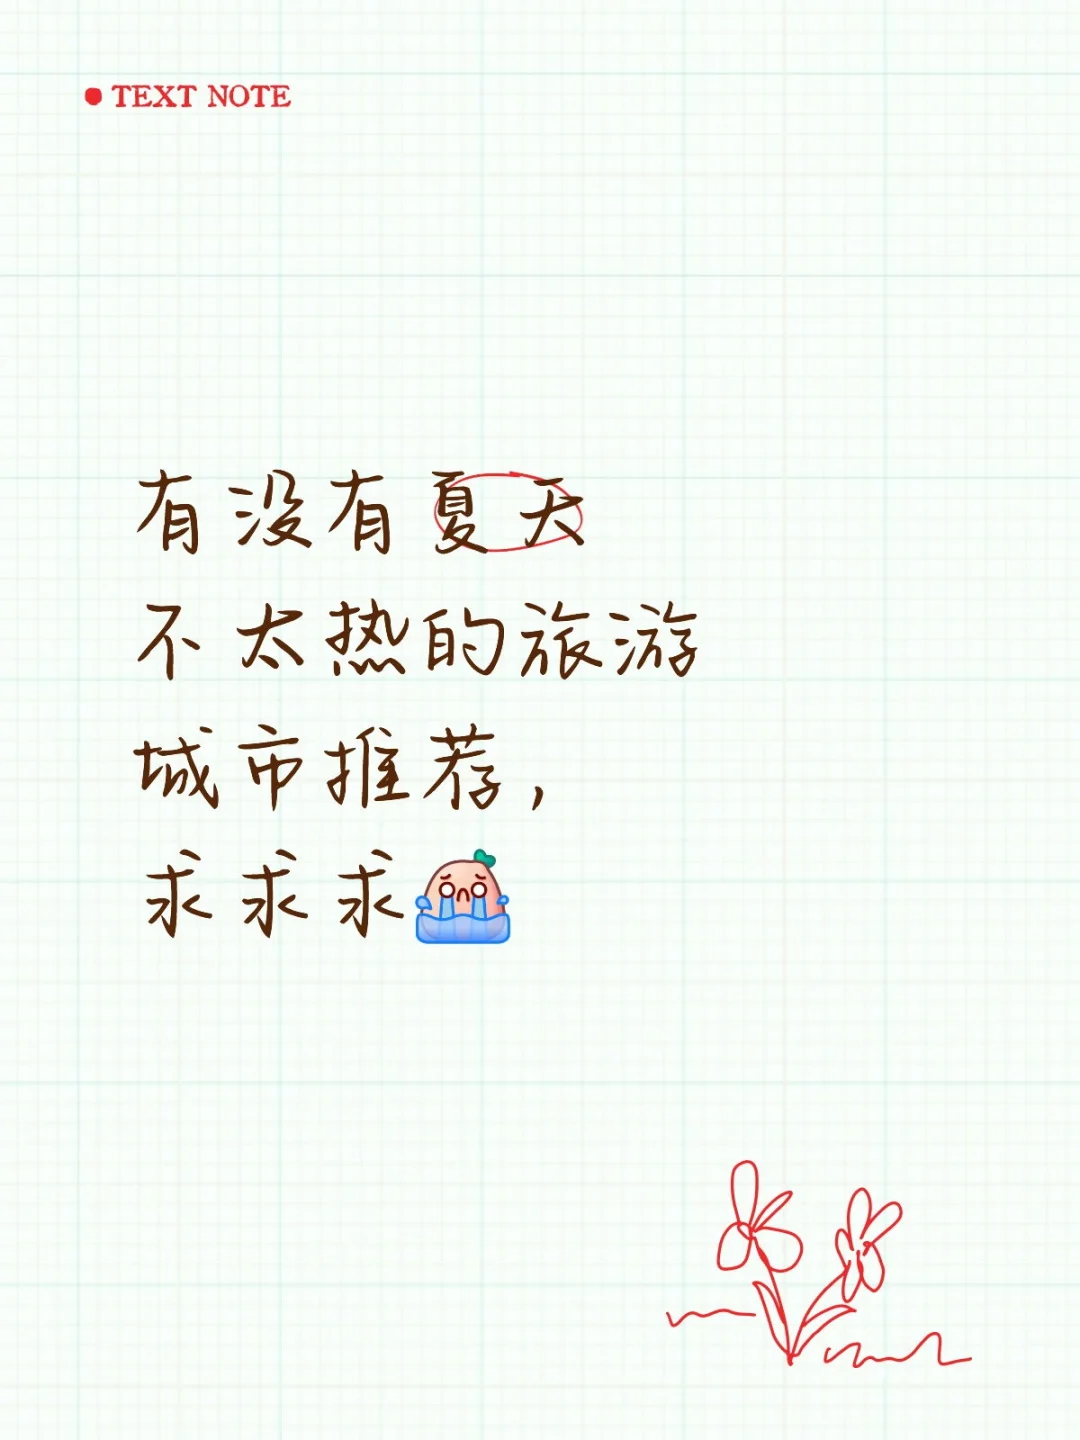 TEXT NOTE
有没有夏天
不太热的旅游
城市推荐，
求求求